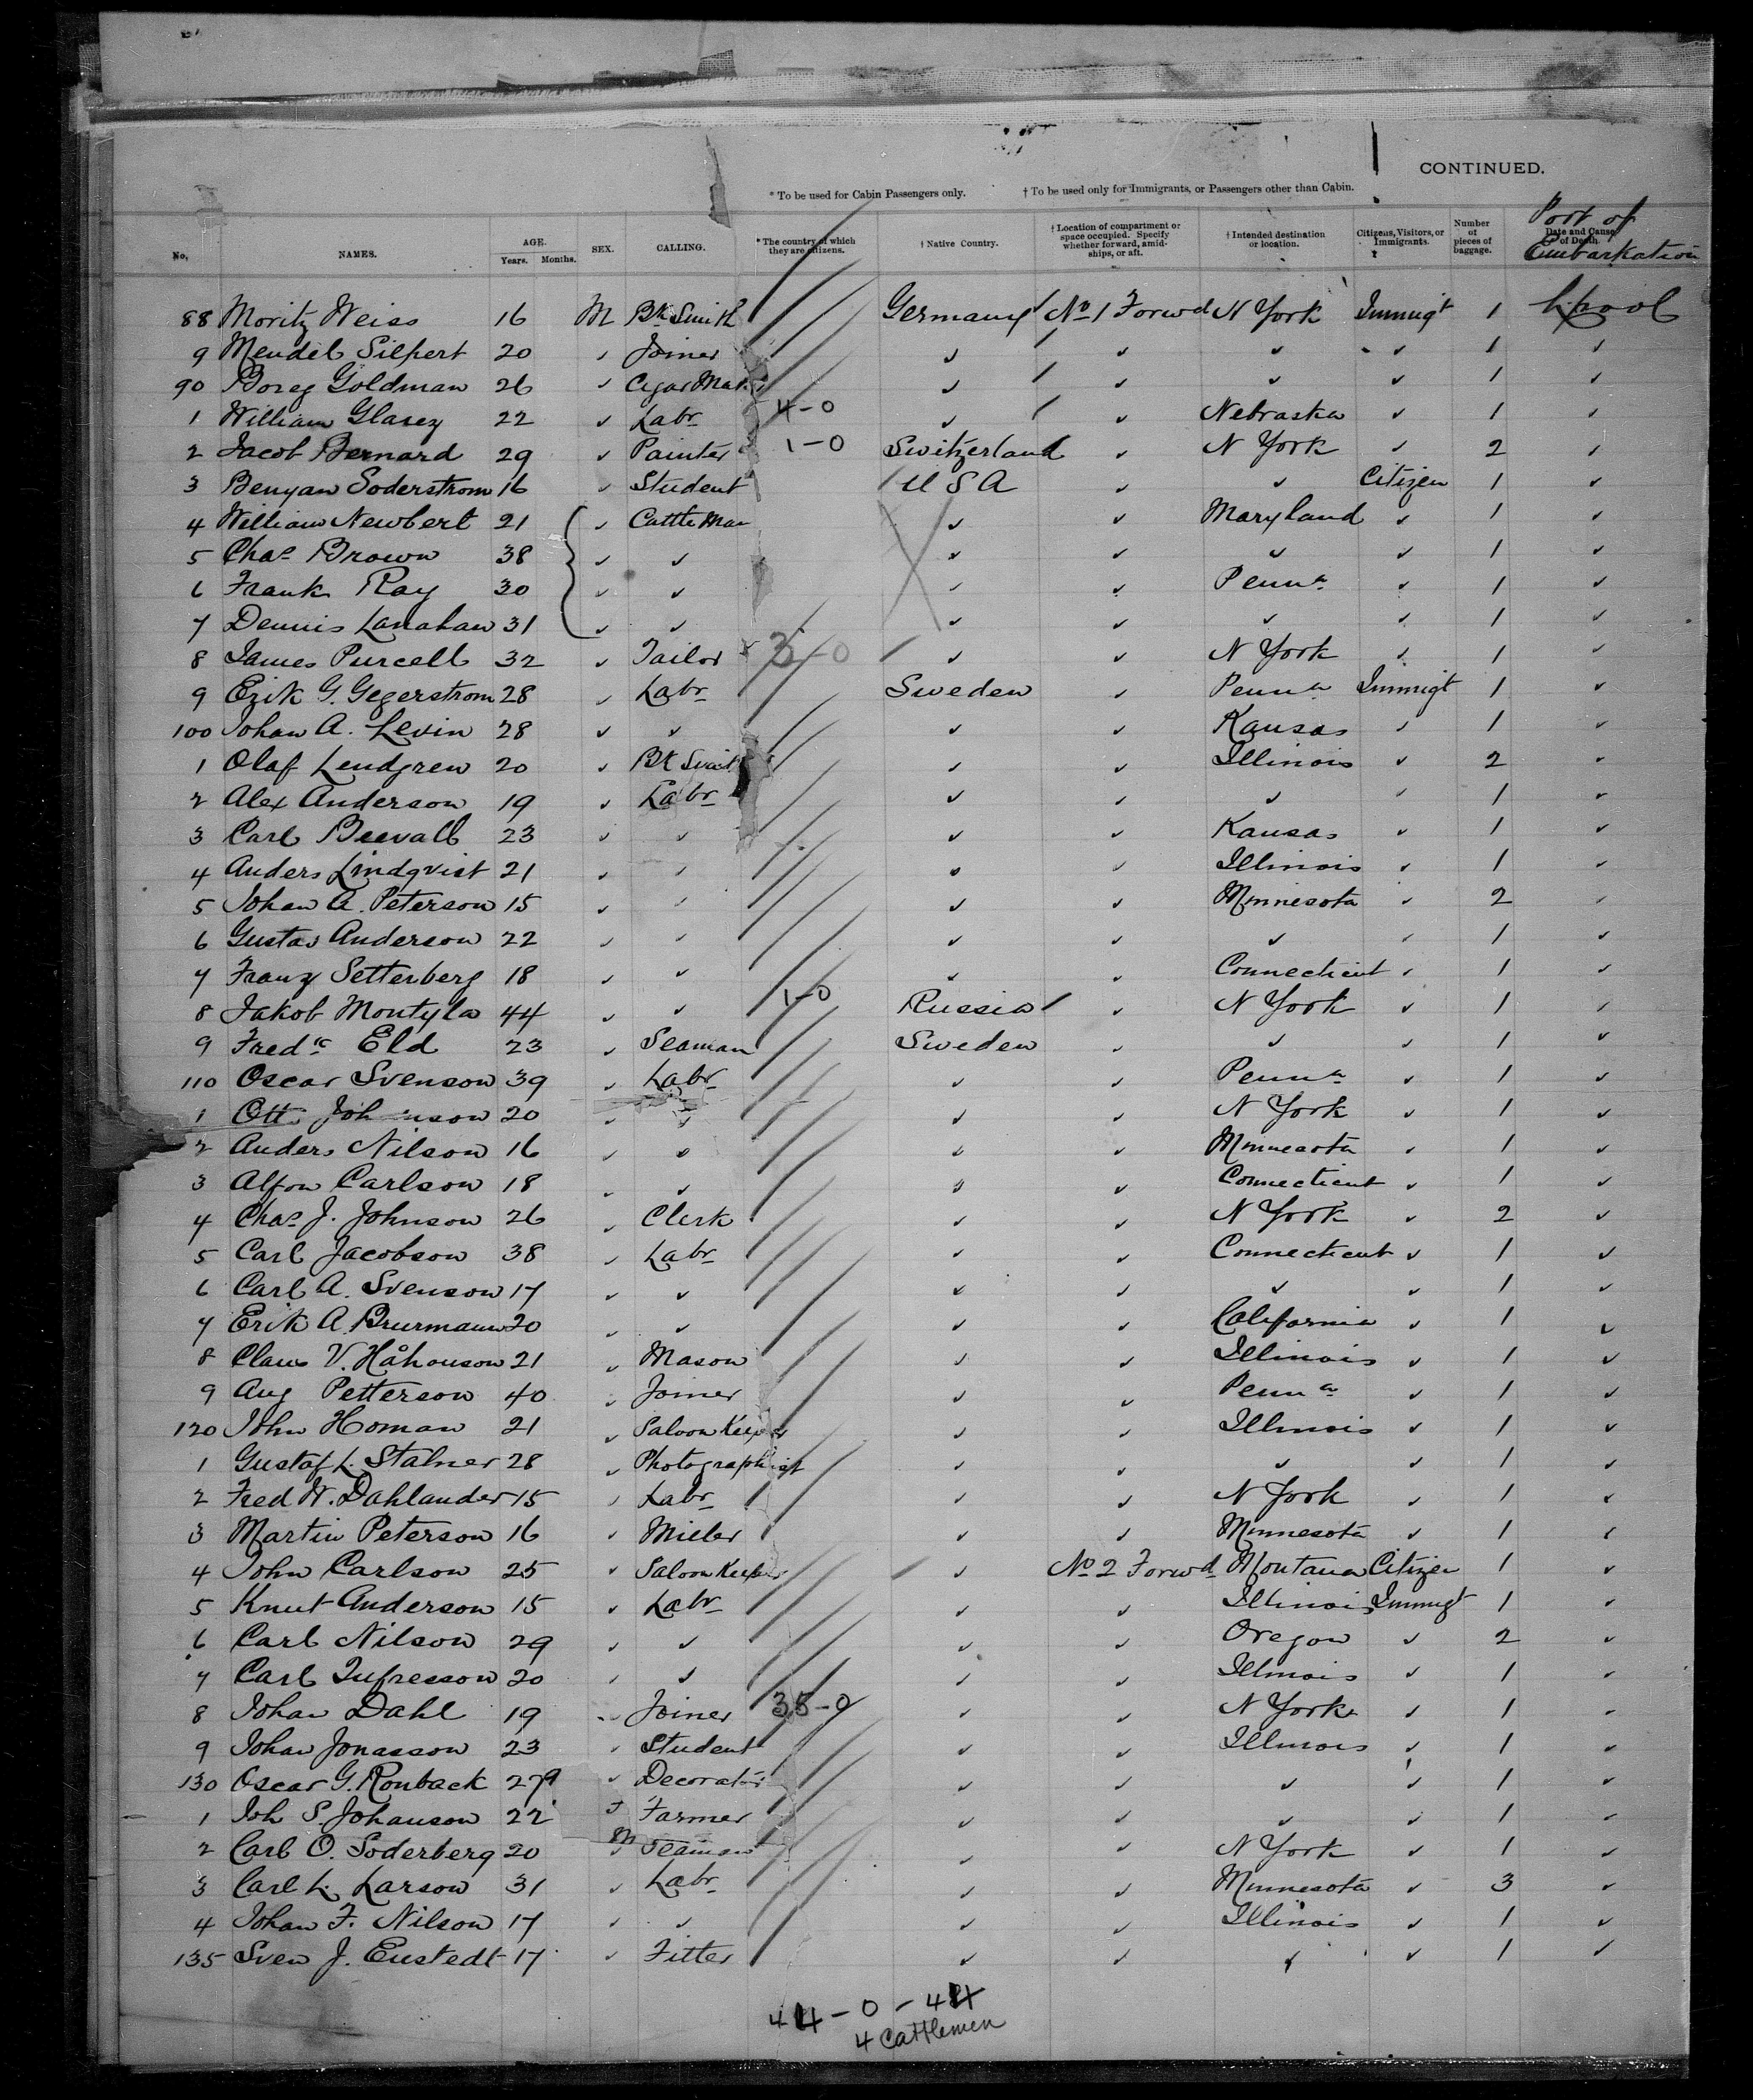 CONTINUED.
* To be used for Cabin Passengers only. † To be used only for Immigrants, or Passengers other than Cabin.
No. NAMES. AGE. Years. Months. SEX. CALLING. * The country of which they are citizens. † Native Country. † Location of compartment or space occupied. Specify whether forward, amidships, or aft. † Intended destination or location. Citizens, Visitors, or Immigrants. Number of pieces of baggage. Date and Cause of Death. Port of Embarkation
88 Moritz Weiss 16 M Bk Smith Germany No 1 Forwd N York Immigt 1 Lpool
9 Mendel Silpert 20 ✓ Joiner ✓ ✓ ✓ ✓ 1 ✓
90 Boreg Goldman 26 ✓ Cigar Maker ✓ ✓ ✓ ✓ 1 ✓
1 William Glasez 22 ✓ Labr 4-0 ✓ ✓ Nebraska ✓ 1 ✓
2 Jacob Bernard 29 ✓ Painter 1-0 Switzerland ✓ N York ✓ 2 ✓
3 Benyan Soderstrom 16 ✓ Student U S A ✓ ✓ Citizen 1 ✓
4 William Newbert 21 ✓ Cattle Man ✓ ✓ Maryland ✓ 1 ✓
5 Chas Brown 38 ✓ ✓ ✓ ✓ ✓ ✓ 1 ✓
6 Frank Ray 30 ✓ ✓ ✓ ✓ Penna ✓ 1 ✓
7 Dennis Lanahan 31 ✓ ✓ ✓ ✓ ✓ ✓ 1 ✓
8 James Purcell 32 ✓ Tailor 3-0 ✓ ✓ N York ✓ 1 ✓
9 Erik G. Gegerstrom 28 ✓ Labr Sweden ✓ Penna Immigt 1 ✓
100 Johan A. Levin 28 ✓ ✓ ✓ ✓ Kansas ✓ 1 ✓
1 Olaf Lendgren 20 ✓ Bk Smith ✓ ✓ Illinois ✓ 2 ✓
2 Alex Anderson 19 ✓ Labr ✓ ✓ ✓ ✓ 1 ✓
3 Carl Beevall 23 ✓ ✓ ✓ ✓ Kansas ✓ 1 ✓
4 Anders Lindqvist 21 ✓ ✓ ✓ ✓ Illinois ✓ 1 ✓
5 Johan A. Peterson 15 ✓ ✓ ✓ ✓ Minnesota ✓ 2 ✓
6 Gustav Anderson 22 ✓ ✓ ✓ ✓ ✓ ✓ 1 ✓
7 Franz Setterberg 18 ✓ ✓ ✓ ✓ Connecticut ✓ 1 ✓
8 Jakob Montyla 44 ✓ ✓ 1-0 Russia ✓ N York ✓ 1 ✓
9 Fredk Eld 23 ✓ Seaman Sweden ✓ ✓ ✓ 1 ✓
110 Oscar Svenson 39 ✓ Labr ✓ ✓ Penna ✓ 1 ✓
1 Otto Johanson 20 ✓ ✓ ✓ ✓ N York ✓ 1 ✓
2 Anders Nilson 16 ✓ ✓ ✓ ✓ Minnesota ✓ 1 ✓
3 Alfon Carlson 18 ✓ ✓ ✓ ✓ Connecticut ✓ 1 ✓
4 Chas J. Johnson 26 ✓ Clerk ✓ ✓ N York ✓ 2 ✓
5 Carl Jacobson 38 ✓ Labr ✓ ✓ Connecticut ✓ 1 ✓
6 Carl A. Svenson 17 ✓ ✓ ✓ ✓ ✓ ✓ 1 ✓
7 Erik A. Brurmann 20 ✓ ✓ ✓ ✓ California ✓ 1 ✓
8 Claus V. Håhonson 21 ✓ Mason ✓ ✓ Illinois ✓ 1 ✓
9 Aug Petterson 40 ✓ Joiner ✓ ✓ Penna ✓ 1 ✓
120 John Homan 21 ✓ Saloon Keeper ✓ ✓ Illinois ✓ 1 ✓
1 Gustaf L. Stalner 28 ✓ Photographist ✓ ✓ ✓ ✓ 1 ✓
2 Fred W. Dahlander 15 ✓ Labr ✓ ✓ N York ✓ 1 ✓
3 Martin Peterson 16 ✓ Miller ✓ ✓ Minnesota ✓ 1 ✓
4 John Carlson 25 ✓ Saloon Keeper ✓ No 2 Forwd Montana Citizen 1 ✓
5 Knut Anderson 15 ✓ Labr ✓ ✓ Illinois Immigt 1 ✓
6 Carl Nilson 29 ✓ ✓ ✓ ✓ Oregon ✓ 2 ✓
7 Carl Tufresson 20 ✓ ✓ ✓ ✓ Illinois ✓ 1 ✓
8 Johan Dahl 19 ✓ Joiner 35-0 ✓ ✓ N York ✓ 1 ✓
9 Johan Jonasson 23 ✓ Student ✓ ✓ Illinois ✓ 1 ✓
130 Oscar G. Ronback 27 ✓ Decorator ✓ ✓ ✓ ✓ 1 ✓
1 Joh S. Johanson 22 Farmer ✓ ✓ ✓ ✓ 1 ✓
2 Carl O. Soderberg 20 M Seaman ✓ ✓ N York ✓ 1 ✓
3 Carl L. Larson 31 ✓ Labr ✓ ✓ Minnesota ✓ 3 ✓
4 Johan F. Nilson 17 ✓ ✓ ✓ ✓ Illinois ✓ 1 ✓
135 Sven J. Enstedt 17 ✓ Fitter ✓ ✓ ✓ ✓ 1 ✓
44-0-44
4 Cattlemen